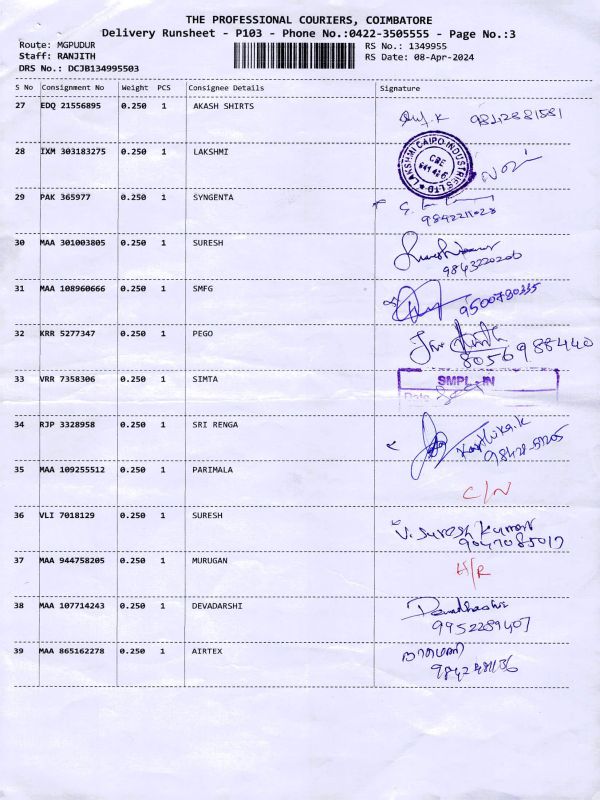 THE PROFESSIONAL COURIERS, COIMBATORE
Delivery Runsheet - P103 - Phone No.:0422-3505555 - Page No.:3
Route: MGPUDUR RS No.: 1349955
Staff: RANJITH RS Date: 08-Apr-2024
DRS No.: DCJB134995503
S No Consignment No Weight PCS Consignee Details Signature
27 EDQ 21556895 0.250 1 AKASH SHIRTS
28 IXM 303183275 0.250 1 LAKSHMI LAKSHMI CAIPO INDUSTRIES LTD CBE
29 PAK 365977 0.250 1 SYNGENTA
30 MAA 301003805 0.250 1 SURESH
9843220206
31 MAA 108960666 0.250 1 SMFG 9500780335
32 KRR 5277347 0.250 1 PEGO
8056988440
33 VRR 7358306 0.250 1 SIMTA SMPL - IN
Date
34 RJP 3328958 0.250 1 SRI RENGA Karthika.K
35 MAA 109255512 0.250 1 PARIMALA
C/N
36 VLI 7018129 0.250 1 SURESH V. Suresh Kumar
9047085017
37 MAA 944758205 0.250 1 MURUGAN H/R
38 MAA 107714243 0.250 1 DEVADARSHI
9952289407
39 MAA 865162278 0.250 1 AIRTEX